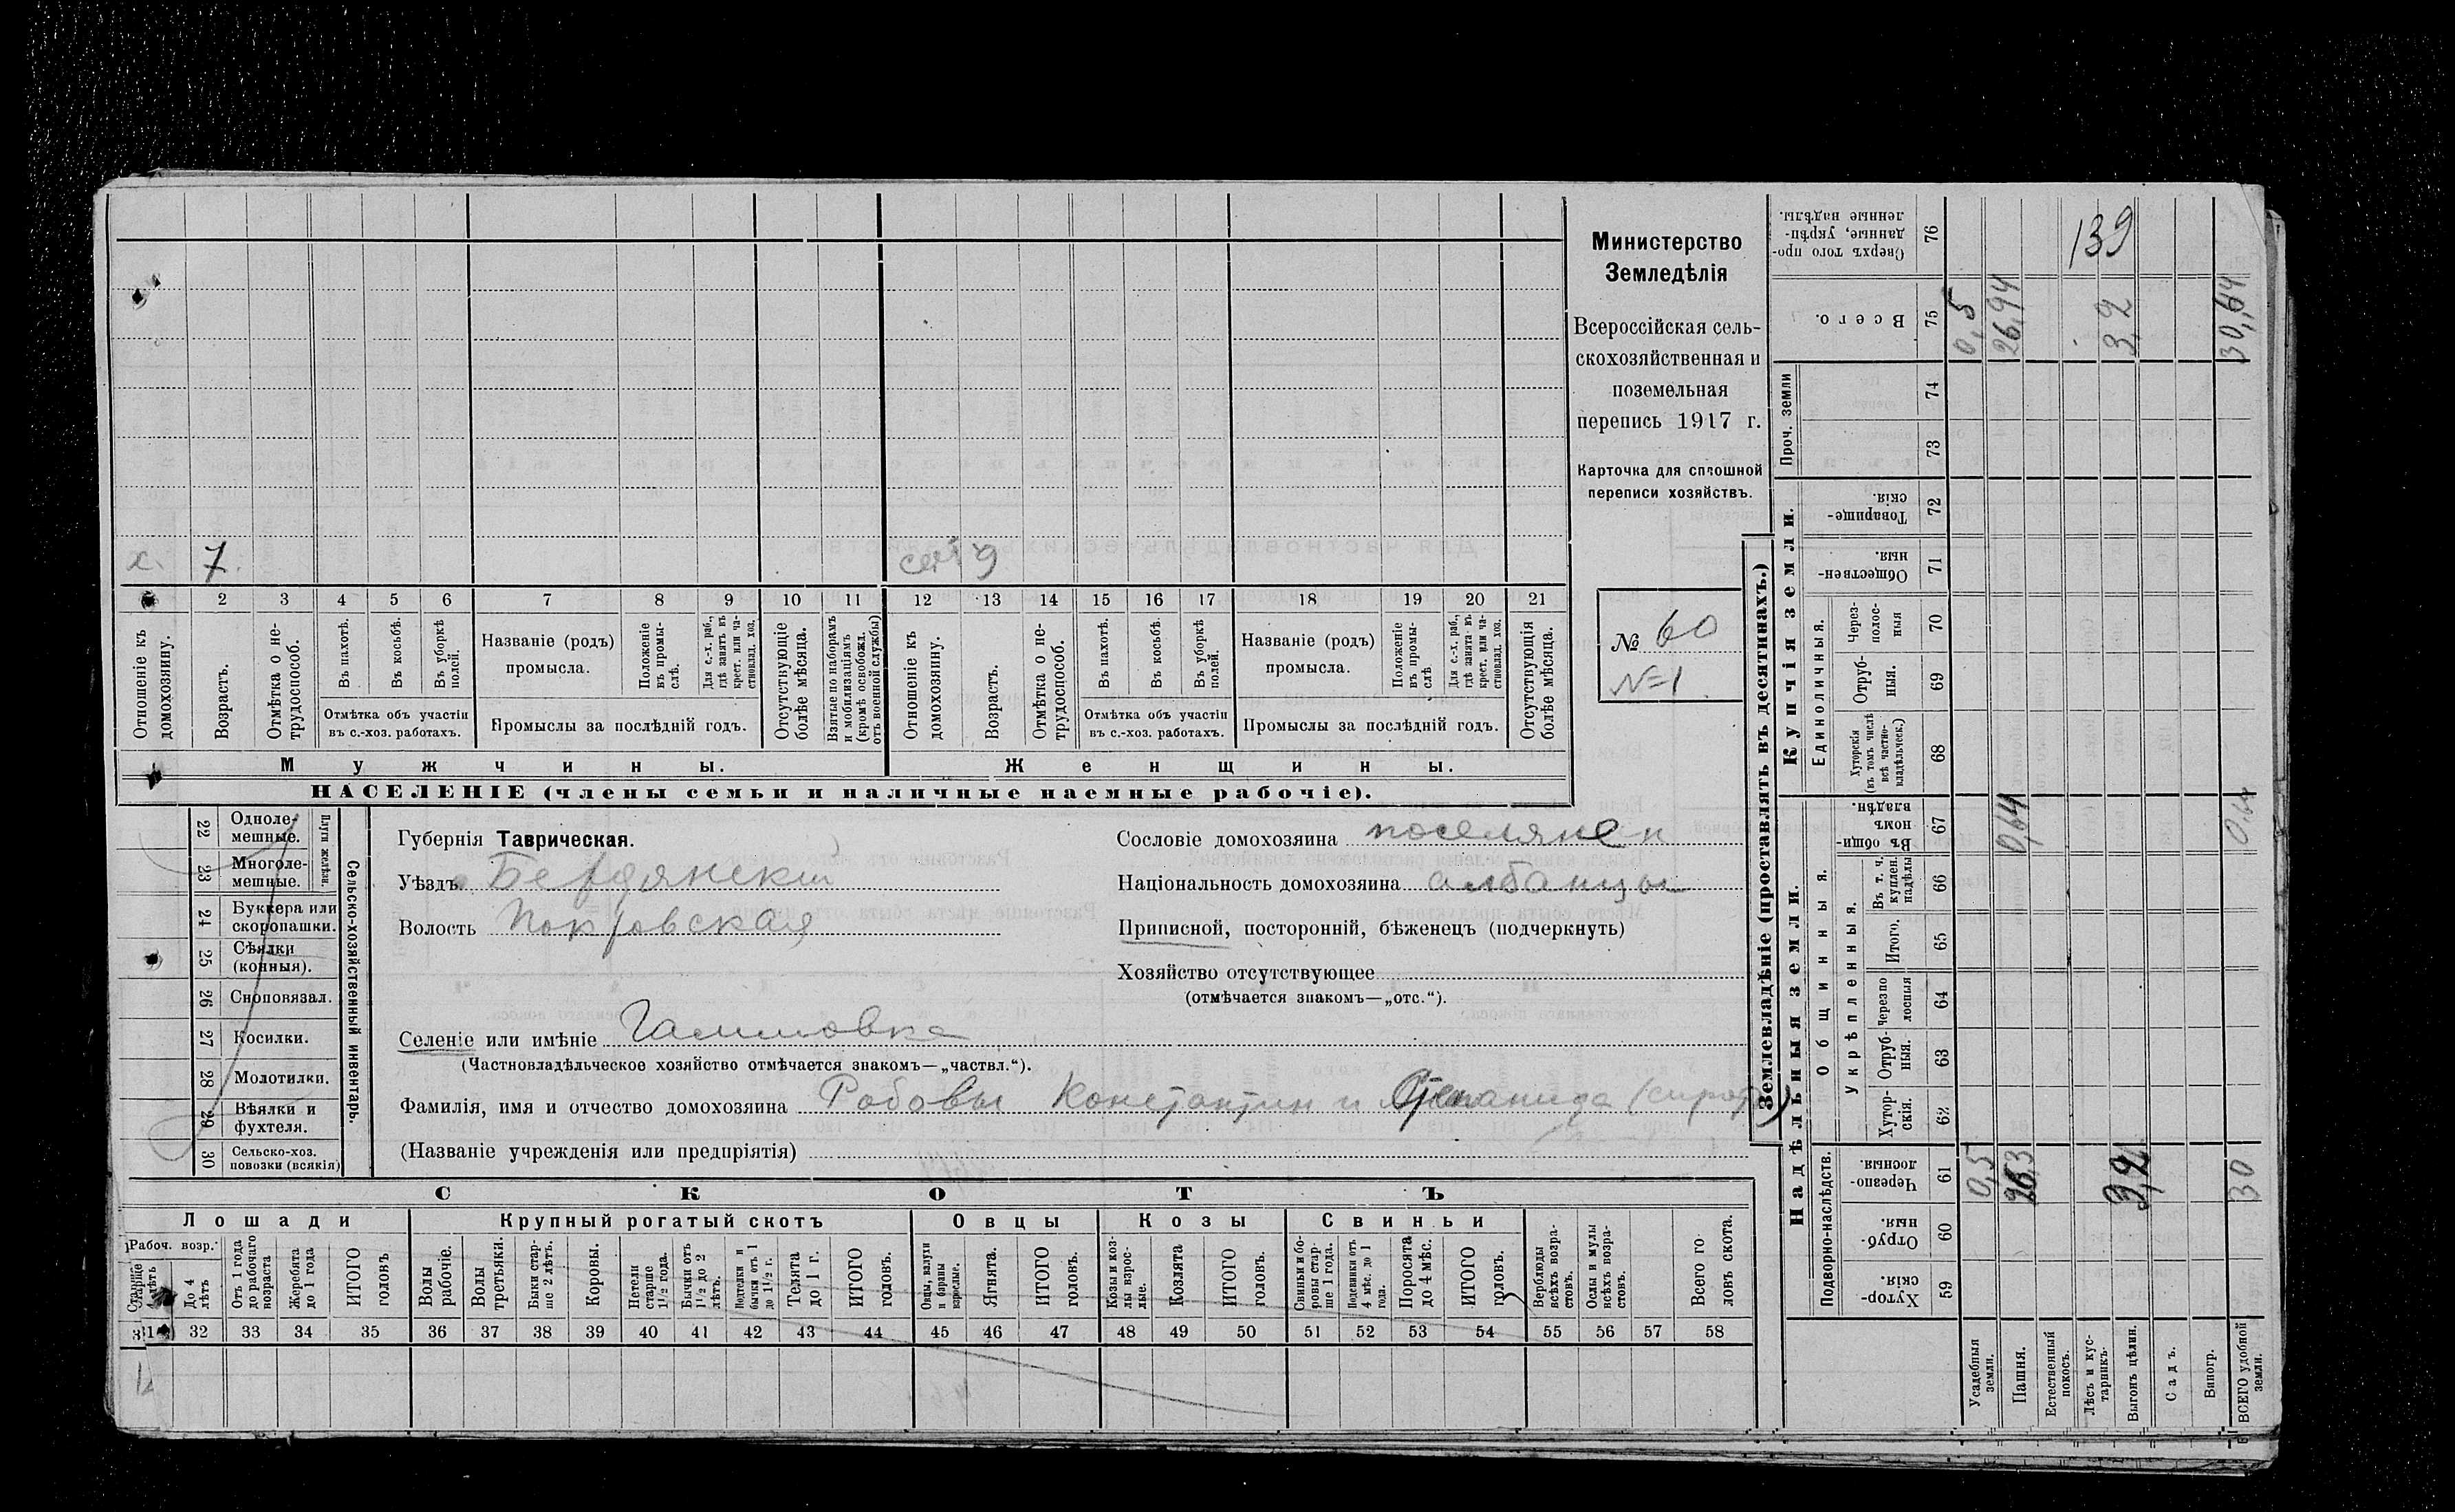 х. 7. сес. 9
1 2 3 4 5 6 7 8 9 10 11 12 13 14 15 16 17 18 19 20 21
Отношеніе къ домохозяину.
Возрастъ.
Отмѣтка о не-
трудоспособ.
Въ пахотѣ.
Въ косьбѣ.
Въ уборкѣ полей.
Отмѣтка объ участіи
въ с.-хоз. работахъ.
Названіе (родъ)
промысла.
Положеніе
въ промы-
слѣ.
Для с.-х. раб.,
гдѣ занятъ въ
крест. или ча-
стновлад. хоз.
Промыслы за послѣдній годъ.
Отсутствующіе
болѣе мѣсяца.
Взятые по наборамъ
и мобилизаціямъ
(кромѣ освобожд.
отъ военной службы)
Отношеніе къ
домохозяину.
Возрастъ.
Отмѣтка о не-
трудоспособ.
Въ пахотѣ.
Въ косьбѣ.
Въ уборкѣ
полей.
Отмѣтка объ участіи
въ с.-хоз. работахъ.
Названіе (родъ)
промысла.
Положеніе
въ промы-
слѣ
Для с.-х. раб.,
гдѣ занята въ
крест. или ча-
стновлад. хоз.
Промыслы за послѣдній годъ.
Отсутствующія
болѣе мѣсяца.
Мужчины.
Женщины.
НАСЕЛЕНІЕ (члены семьи и наличные наемные рабочіе).
Министерство
Земледѣлія
Всероссійская сель-
скохозяйственная и
поземельная
перепись 1917 г.
Карточка для сплошной
переписи хозяйствъ.
№ 60
№ 1.
22 Одноле-
мешные.
23 Многоле-
мешные.
Плуги желѣзн.
24 Буккера или
скоропашки.
25 Сѣялки
(конныя).
26 Сноповязал.
27 Косилки.
28 Молотилки.
29 Вѣялки и
фухтеля.
30 Сельско-хоз.
повозки (всякія)
Сельско-хозяйственный инвентарь.
Губернія Таврическая.
Уѣздъ Бердянскій
Волость Покровская
Сословіе домохозяина поселянен
Національность домохозяина албанцы
Приписной, посторонній, бѣженецъ (подчеркнуть)
Хозяйство отсутствующее
(отмѣчается знакомъ—„отс.“).
Селеніе или имѣніе Гаммовка
(Частновладѣльческое хозяйство отмѣчается знакомъ—„частвл.“).
Фамилія, имя и отчество домохозяина Робовы Константин и Степанида (сироты)
(Названіе учрежденія или предпріятія)
СКОТЪ
Лошади
Рабоч. возр.
Старше
4 лѣтъ
До 4
лѣтъ
Отъ 1 года
до рабочаго
возраста
Жеребята
до 1 года
ИТОГО
головъ
Крупный рогатый скотъ
Волы
рабочіе.
Волы
третьяки.
Быки стар-
ше 2 лѣтъ.
Коровы.
Нетели
старше
1½ года.
Бычки отъ
1½ до 2
лѣтъ.
Подтелки и
бычки отъ 1
до 1½ г.
Телята
до 1 г.
ИТОГО
головъ.
Овцы
Овцы, валухи
и бараны
взрослые.
Ягнята.
ИТОГО
головъ.
Козы
Козы и коз-
лы взрос-
лые.
Козлята
ИТОГО
головъ.
Свиньи
Свиньи и бо-
ровы стар-
ше 1 года.
Подсвинки отъ
4 мѣс. до 1
года.
Поросята
до 4 мѣс.
ИТОГО
головъ.
Верблюды
всѣхъ возра-
стовъ.
Ослы и мулы
всѣхъ возра-
стовъ.
Всего го-
ловъ скота.
31 32 33 34 35 36 37 38 39 40 41 42 43 44 45 46 47 48 49 50 51 52 53 54 55 56 57 58
Землевладѣніе (проставлять въ десятинахъ.)
Надѣльныя земли.
Купчія земли.
Проч. земли
Подворно-наслѣдств.
Общинныя.
Укрѣпленныя.
Единоличныя.
Хутор-
скія. 59
Отруб-
ныя. 60
Черезпо-
лосныя. 61
Хутор-
скія. 62
Отруб-
ныя. 63
Черезпо
лосныя 64
Итого. 65
Въ т. ч.
куплен.
надѣлы 66
Въ общи-
номъ
владѣн. 67
Хуторскія
(въ томъ числѣ
всѣ частно-
владѣльческ.) 68
Отруб-
ныя. 69
Через-
полос-
ныя 70
Обществен-
ныя. 71
Товарище-
скія. 72
73
74
Всего. 75
Сверхъ того про-
данные, укрѣп-
ленные надѣлы. 76
Усадебныя
земли.
Пашня.
Естественный
покосъ.
Лѣсъ и кус-
тарникъ.
Выгонъ цѣлин.
Садъ.
Виногр.
ВСЕГО удобной
земли.
0,5 26,3 3,2 30
0,64 0,64
0,5 26,94 3,2 30,64
139